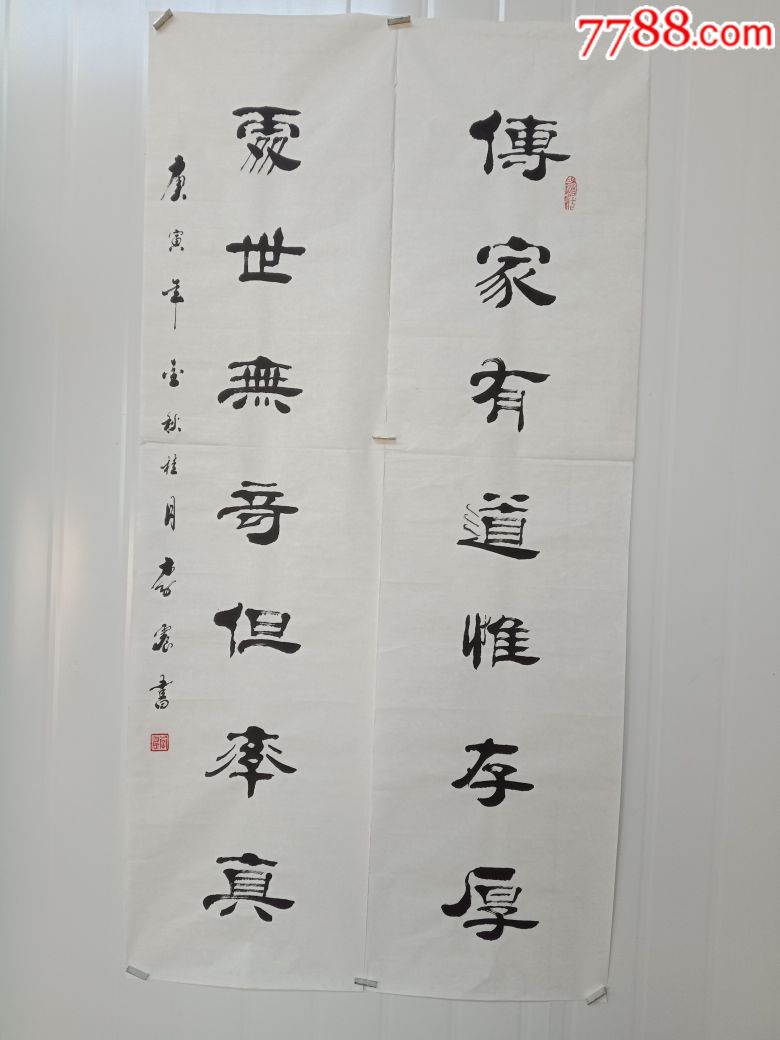 7788.com
傳家有道惟存厚
處世無奇但率真
庚寅年金秋桂月 震書